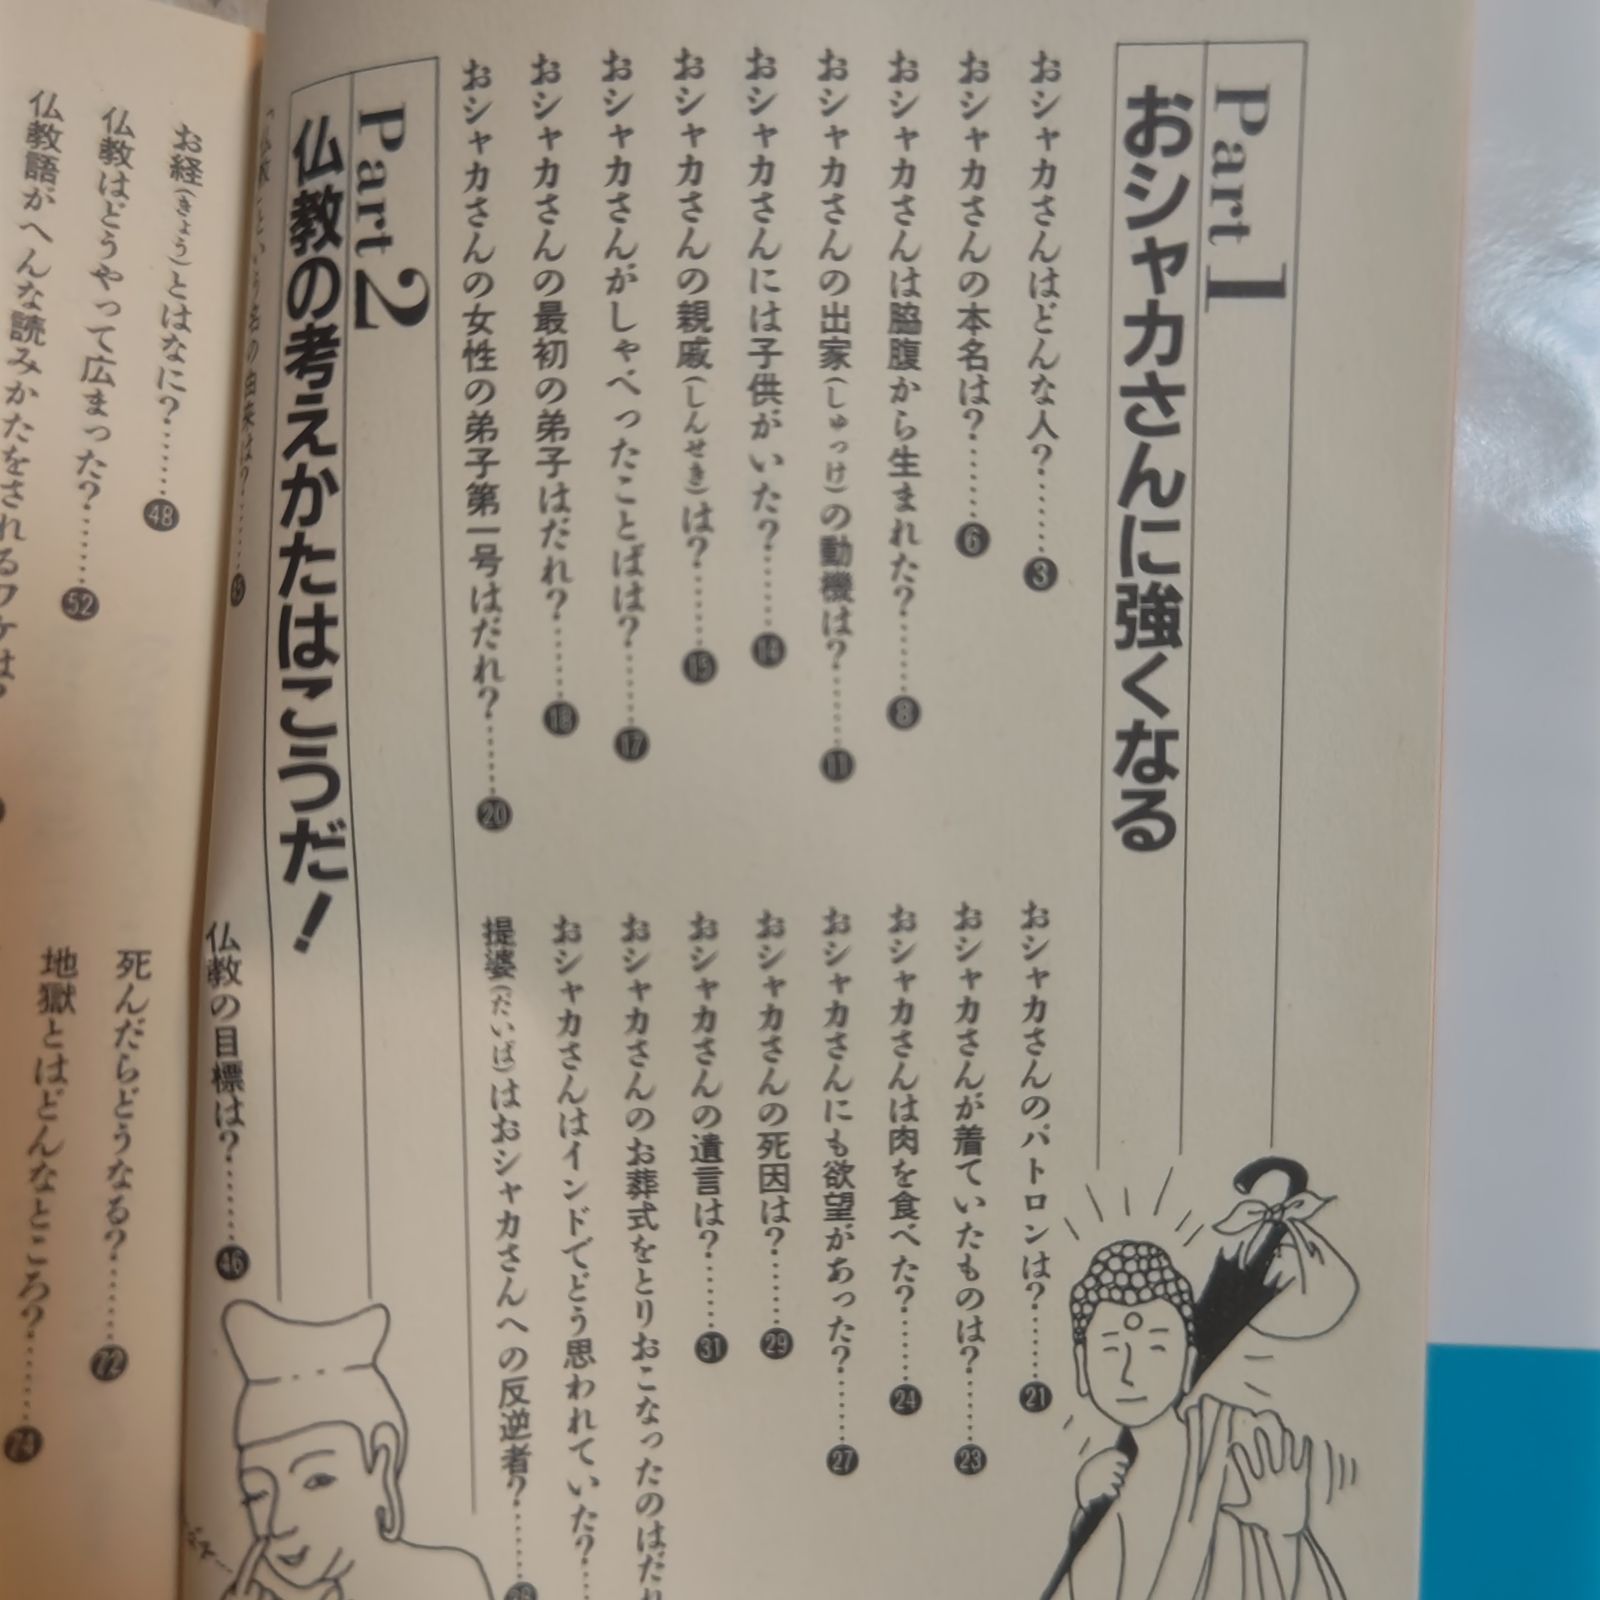 Part 1
おシャカさんに強くなる
おシャカさんはどんな人?……3
おシャカさんの本名は?……6
おシャカさんは脇腹から生まれた?……8
おシャカさんの出家(しゅっけ)の動機は?……11
おシャカさんには子供がいた?……14
おシャカさんの親戚(しんせき)は?……15
おシャカさんがしゃべったことばは?……17
おシャカさんの最初の弟子はだれ?……18
おシャカさんの女性の弟子第一号はだれ?……20
おシャカさんのパトロンは?……21
おシャカさんが着ていたものは?……23
おシャカさんは肉を食べた?……24
おシャカさんにも欲望があった?……27
おシャカさんの死因は?……29
おシャカさんの遺言は?……31
おシャカさんのお葬式をとりおこなったのはだれ
おシャカさんはインドでどう思われていた?……
提婆(だいば)はおシャカさんへの反逆者?……
Part 2
仏教の考えかたはこうだ!
という名の由来は?……
お経(きょう)とはなに?……48
仏教はどうやって広まった?……52
仏教語がへんな読みかたをされるワケは?
仏教の目標は?……46
死んだらどうなる?……72
地獄とはどんなところ?……74